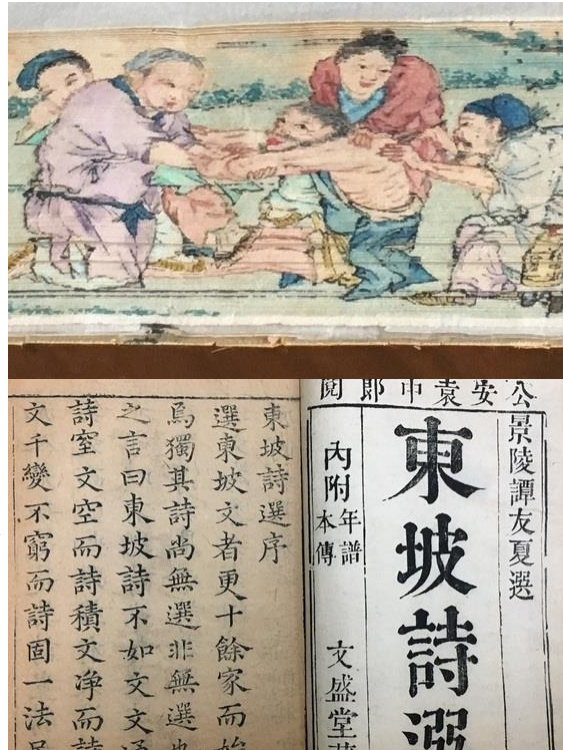 公安袁中郎閱
景陵譚友夏選
東坡詩選
內附年譜本傳
文盛堂
東坡詩選序
選東坡文者更十餘家而始
焉獨其詩尚無選非無選也
之言曰東坡詩不如文文通
詩窒文空而詩積文淨而詩
文千變不窮而詩固一法足